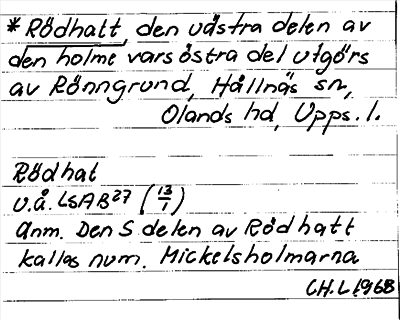 * Rödhatt, den västra delen av
den holme vars östra del utgörs
av Rönngrund, Hållnäs sn,
Olands hd, Upps. l.
Rödhat
U.å. LSA B27 (13/1)
Anm. Den S delen av Rödhatt
kallas num. Mickelsholmarna
CH.L 1968